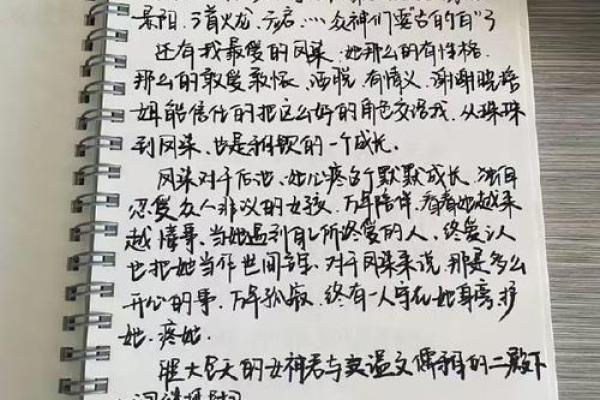 景阳、三首火龙、元启、……众神们要各的自了
还有我最爱的凤染、她那么的有性格、
那么的敢爱敢恨、洒脱、有情义、谢谢晓培
姐能信任的把这么好的角色交给我、从珠珠
到凤染、也是我的一个成长、
凤染对于后池、她心疼这个默默成长、独自
忍受众人非议的女孩、万年陪伴、看着她越来
越懂事、当她遇到自己所终爱的人、终爱认
也把她当作世间、对于凤染来说、那是多么
开心的事、万年孤寂、终有一人守在她身旁护
她、疼她、
强大飞天的女神君与温文儒雅的二殿下